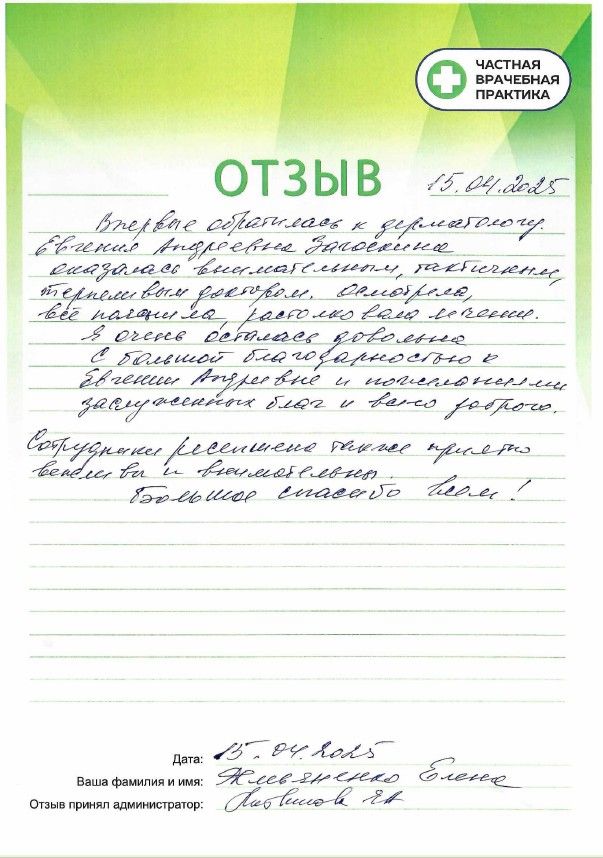 ЧАСТНАЯ
ВРАЧЕБНАЯ
ПРАКТИКА
ОТЗЫВ
15.04.2025
Впервые обратилась к дерматологу.
Евгения Андреевна Загоскина
оказалась внимательным, тактичным,
терпеливым доктором. Осмотрела,
всё пояснила, растолковала лечение.
Я очень осталась довольна
С большой благодарностью к
Евгении Андреевне и пожеланиями
заслуженных благ и всего доброго.
Сотрудники ресепшена также приятно
вежливы и внимательны.
Большое спасибо всем!
Дата: 15.04.2025
Ваша фамилия и имя: Елена
Отзыв принял администратор: